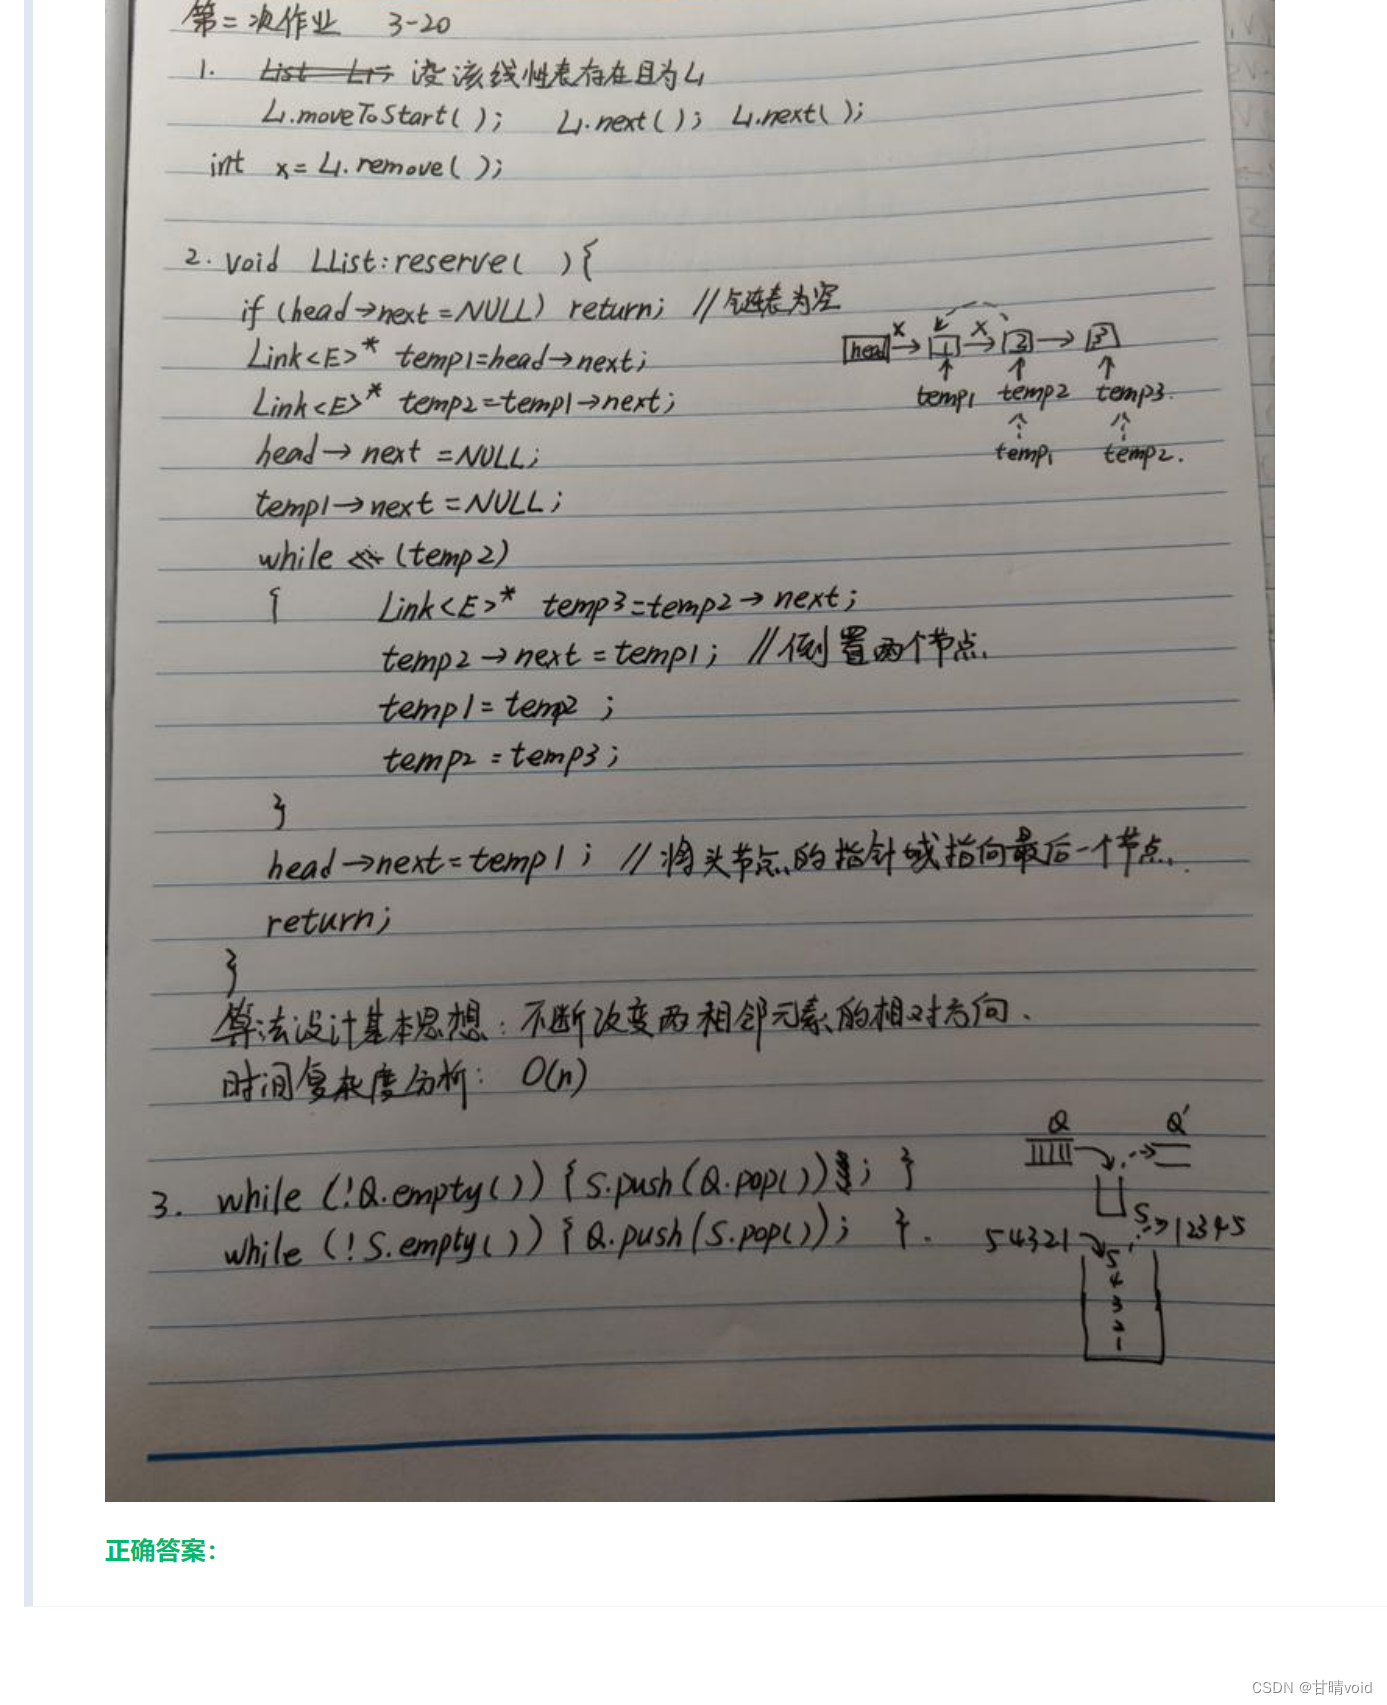 第二次作业 3-20
1. List L1; 设该线性表存在且为L1
L1.moveToStart( ); L1.next( ); L1.next( );
int x = L1.remove( );
2. void LList:reserve( ){
if (head→next = NULL) return; //链表为空
Link<E>* temp1=head→next;
Link<E>* temp2=temp1→next;
head→next = NULL;
temp1→next = NULL;
while (temp2)
{ Link<E>* temp3=temp2→next;
temp2→next = temp1; //倒置两个节点.
temp1 = temp2 ;
temp2 = temp3;
}
head→next = temp1; //将头节点的指针域指向最后一个节点.
return;
}
head x→ 1 x→ 2 → 3
temp1 temp2 temp3.
temp1 temp2.
算法设计基本思想: 不断改变两相邻元素的相对方向.
时间复杂度分析: O(n)
3. while (!Q.empty()) { S.push(Q.pop()); }
while (!S.empty()) { Q.push(S.pop()); }.
Q Q'
S
54321 12345
5
4
3
2
1
正确答案：
CSDN @甘晴void